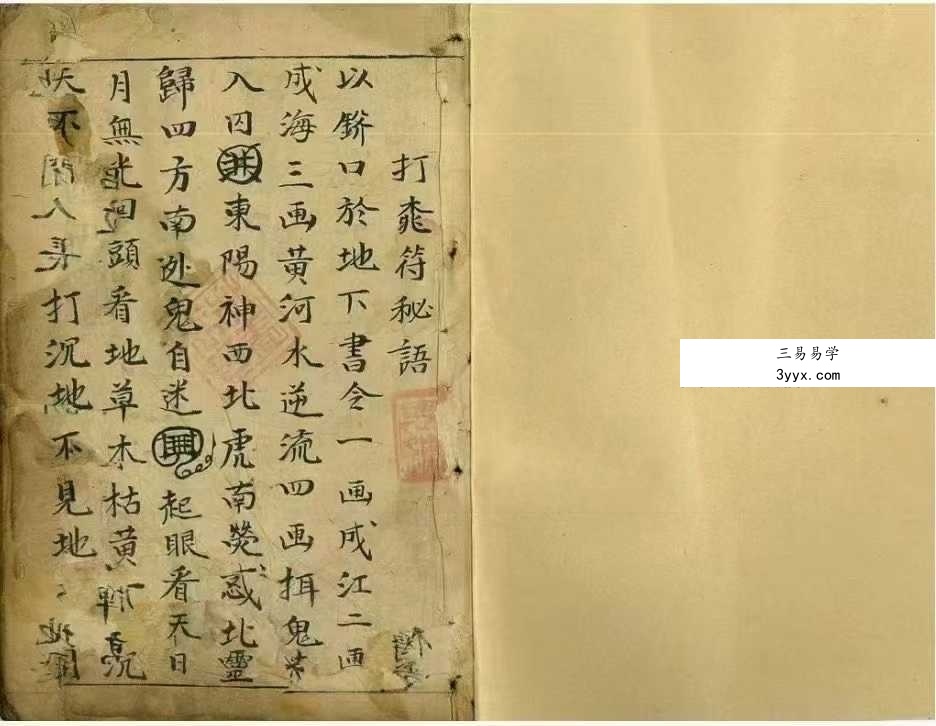 打 符秘語
以 口於地下書令一画成江二画
成海三画黃河水逆流四画 鬼
入囚 東陽神西北虎南熒惑北靈
歸四方南 鬼自迷 起眼看天日
月無光回頭看地草木枯黃 沉
天不 人 打沉地不見地
三易易学
3yyx.com